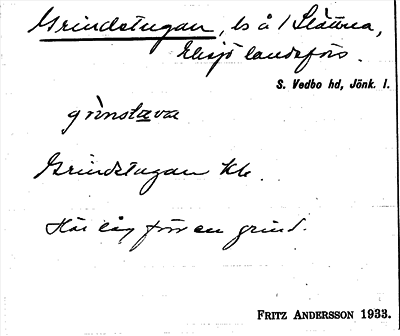 Grindstugan, ls å 1 Slättna,
Eksjö landsförs.
S. Vedbo hd, Jönk. l.
grinstava
Grindstugan kk.
Här låg förr en grind.
FRITZ ANDERSSON 1933.